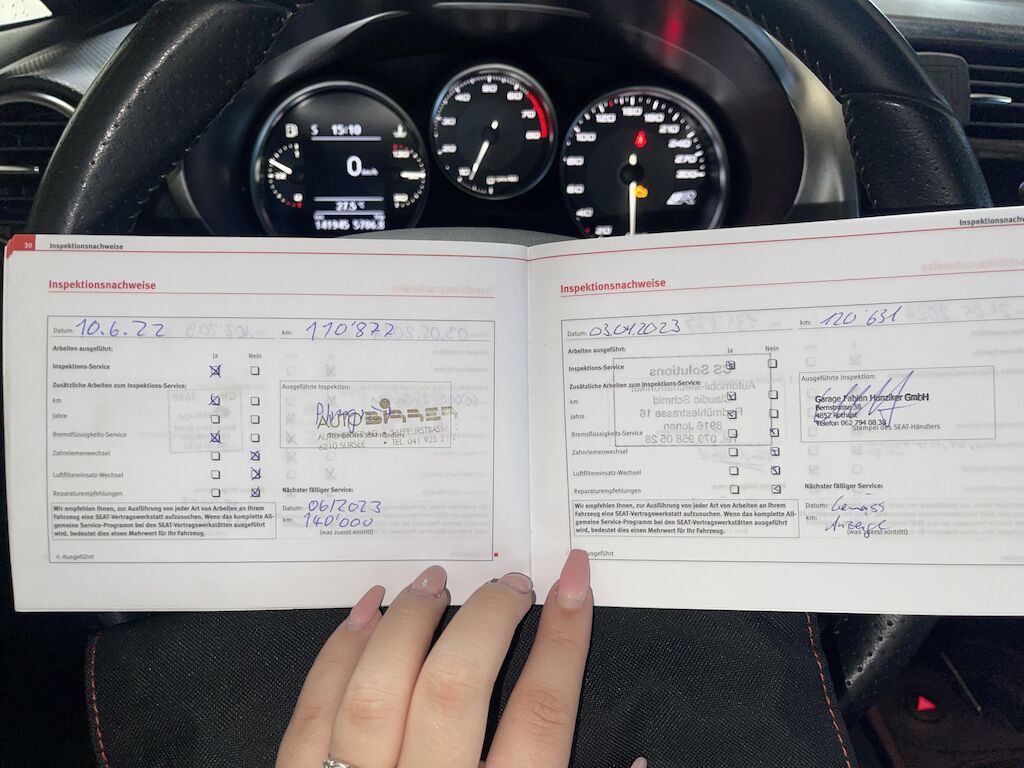 S 15:10
0 km/h
27.5°
141945 5706.3
40 50 60 70 80
20 40 60 100 120 160 210 240 270 300
30 Inspektionsnachweise
Inspektionsnachweise
Datum: 10.6.22 km: 110'872
Arbeiten ausgeführt:
Ja Nein
Inspektions-Service
Zusätzliche Arbeiten zum Inspektions-Service:
km
Jahre
Bremsflüssigkeits-Service
Zahnriemenwechsel
Luftfiltereinsatz-Wechsel
Reparaturempfehlungen
Ausgeführte Inspektion:
AUTO BIRRER
SAPPEURSTRASSE
6210 SURSEE • TEL 041 925 2
Stempel des SEAT-Händlers
Nächster fälliger Service:
Datum: 06/2023
km: 140'000
(was zuerst eintritt)
Wir empfehlen Ihnen, zur Ausführung von jeder Art von Arbeiten an Ihrem
Fahrzeug eine SEAT-Vertragswerkstatt aufzusuchen. Wenn das komplette All-
gemeine Service-Programm bei den SEAT-Vertragswerkstätten ausgeführt
wird, bedeutet dies einen Mehrwert für Ihr Fahrzeug.
Ausgeführt
Inspektionsnachw
Inspektionsnachweise
Datum: 03.04.2023 km: 120'631
Arbeiten ausgeführt:
Ja Nein
Inspektions-Service
Zusätzliche Arbeiten zum Inspektions-Service:
km
Jahre
Bremsflüssigkeits-Service
Zahnriemenwechsel
Luftfiltereinsatz-Wechsel
Reparaturempfehlungen
CS Solutions
Automobil-Mechatroniker
Claudio Schmid
8916 Jonen
Tel. 079 958 05 28
Ausgeführte Inspektion:
Garage Fabian Hunziker GmbH
Bernstrasse 38
4852 Rothrist
Telefon 062 794 08 38
Stempel des SEAT-Händlers
Nächster fälliger Service:
Datum: Gemäss
km: Anzeige
(was zuerst eintritt)
Wir empfehlen Ihnen, zur Ausführung von jeder Art von Arbeiten an Ihrem
Fahrzeug eine SEAT-Vertragswerkstatt aufzusuchen. Wenn das komplette All-
gemeine Service-Programm bei den SEAT-Vertragswerkstätten ausgeführt
wird, bedeutet dies einen Mehrwert für Ihr Fahrzeug.
Ausgeführt